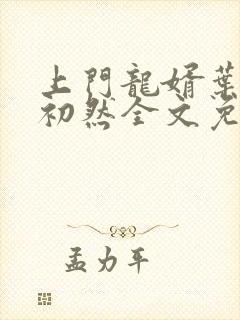 上門龍婿葉
初然全文免
孟力平